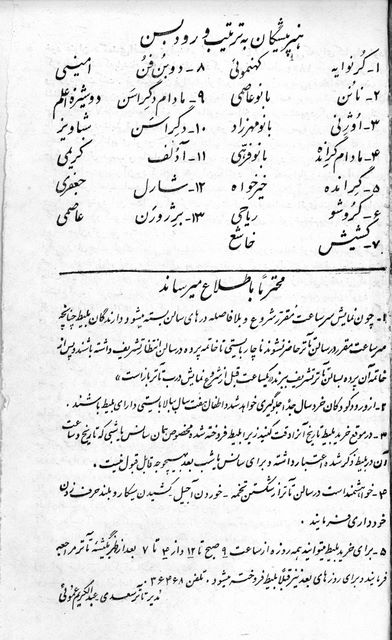 هنرپیشگان به ترتیب ورود بسن
۱- کرنوایه کهنموئی ۸- دوبن فن امینی
۲- نانن بانو عاصمی ۹- مادام دگراسن دوشیزه اعلم
۳- اوژنی بانو مهرزاد ۱۰- دگراسن شباویز
۴- مادام گرانده بانو فرهی ۱۱- آدلف کریمی
۵- گرانده خیرخواه ۱۲- شارل جعفری
۶- کروشو ریاحی ۱۳- برژورن عاصمی
۷- کشیش خاشع
محترماً باطلاع میرساند
۱- چون نمایش سر ساعت مقرر شروع و بلافاصله درهای سالن بسته میشود دارندگان بلیط چنانچه
سر ساعت مقرر در سالن تآتر حاضر نشوند ناچار بایستی تا خاتمه پرده در سالن انتظار تشریف داشته باشند و پس از
خاتمه آن پرده بسالن تآتر تشریف ببرند یکساعت قبل از شروع نمایش درب تآتر باز است
۲- از ورود کودکان خردسال جداً جلوگیری خواهد شد و اطفال هفت سال ببالا بایستی دارای بلیط باشند .
۳- در موقع خرید بلیط تاریخ آنرا دقت کنید زیرا بلیط فروخته شده مخصوص همان سانس هائیست که تاریخ و ساعت
آن در بلیط ذکر شده و اعتبار داشته و برای سانس های شب بعد بهیچوجه قابل قبول نیست .
۴- خواهشمند است در سالن تآتر از شکستن تخمه - خوردن آجیل - کشیدن سیگار و بلند حرف زدن
خودداری فرمایند .
۵- برای خرید بلیط میتوانید همه روزه از ساعت ۹ صبح تا ۱۲ و از ۴ تا ۷ بعد از ظهر بگیشه تآتر مراجعه
فرمائید و برای روزهای بعد نیز قبلاً بلیط فروخته میشود . تلفن ۳۶۴۶۸
مدیر تآتر سعدی عبدالکریم عموئی